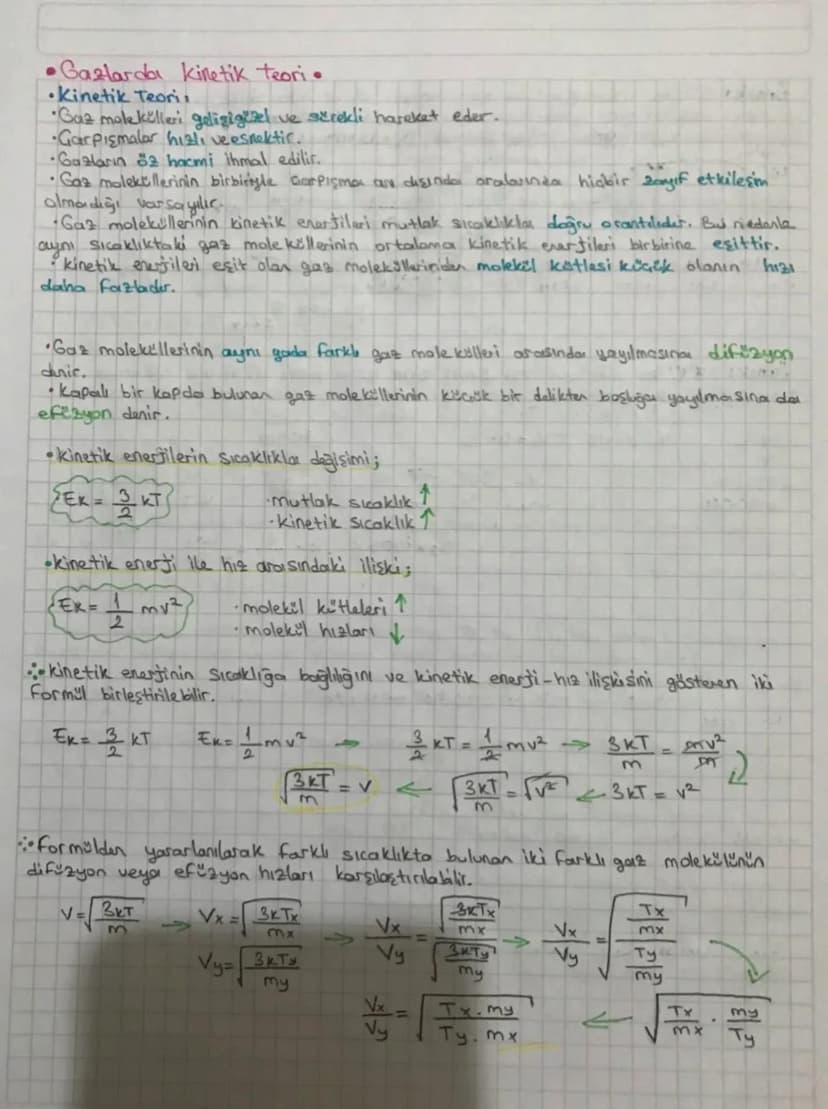 • Gazlarda kinetik teori •
• Kinetik Teori;
• Gaz molekülleri gelişigüzel ve sürekli hareket eder.
• Çarpışmalar hızlı ve esnektir.
• Gazların öz hacmi ihmal edilir.
• Gaz moleküllerinin birbiriyle çarpışma anı dışında aralarında hiçbir zayıf etkileşim
olmadığı varsayılır.
• Gaz moleküllerinin kinetik enerjileri mutlak sıcaklıkla doğru orantılıdır. Bu nedenle
aynı sıcaklıktaki gaz moleküllerinin ortalama kinetik enerjileri birbirine eşittir.
• Kinetik enerjileri eşit olan gaz moleküllerinden molekül kütlesi küçük olanın hızı
daha fazladır.
• Gaz moleküllerinin aynı gada farklı gaz molekülleri arasında yayılmasına difüzyon
denir.
• Kapalı bir kapda bulunan gaz moleküllerinin küçük bir delikten boşluğa yayılmasına da
efüzyon denir.
• Kinetik enerjilerin sıcaklıkla değişimi;
Ek = 3/2 kT · mutlak sıcaklık ↑
· kinetik sıcaklık ↑
• kinetik enerji ile hız arasındaki ilişki;
Ek = 1/2 mv² · molekül kütleleri ↑
· molekül hızları ↓
∴• kinetik enerjinin sıcaklığa bağlılığını ve kinetik enerji-hız ilişkisini gösteren iki
formül birleştirilebilir.
Ek = 3/2 kT Ek = 1/2 mv² → 3/2 kT = 1/2 mv² → 3kT/m = mv²/m
√(3kT/m) = v ← √(3kT/m) = √v² ← 3kT = v²
∴• formülden yararlanılarak farklı sıcaklıkta bulunan iki farklı gaz molekülünün
difüzyon veya efüzyon hızları karşılaştırılabilir.
V = √(3kT/m) → Vx = √(3kTx/mx) → Vx/Vy = √(3kTx/mx)/√(3kTy/my) → Vx/Vy = √((Tx/mx)/(Ty/my))
Vy = √(3kTy/my)
Vx/Vy = √(Tx.my/Ty.mx) ← √(Tx/mx · my/Ty)